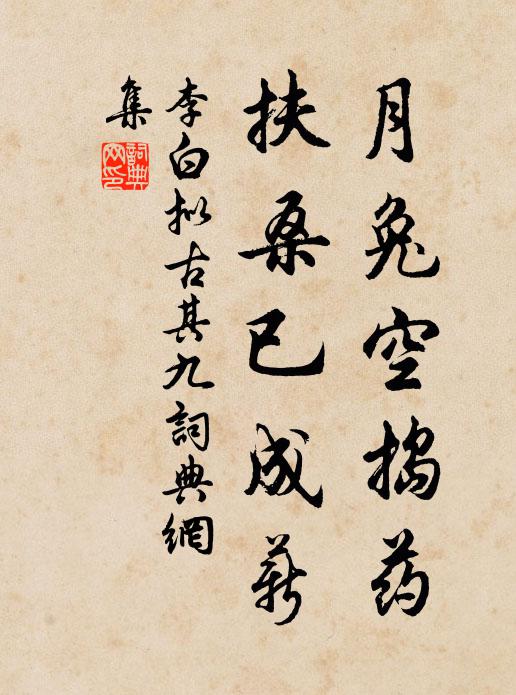 月兔空捣药
扶桑已成薪
李白拟古其九詞典網
集
詞典
网印